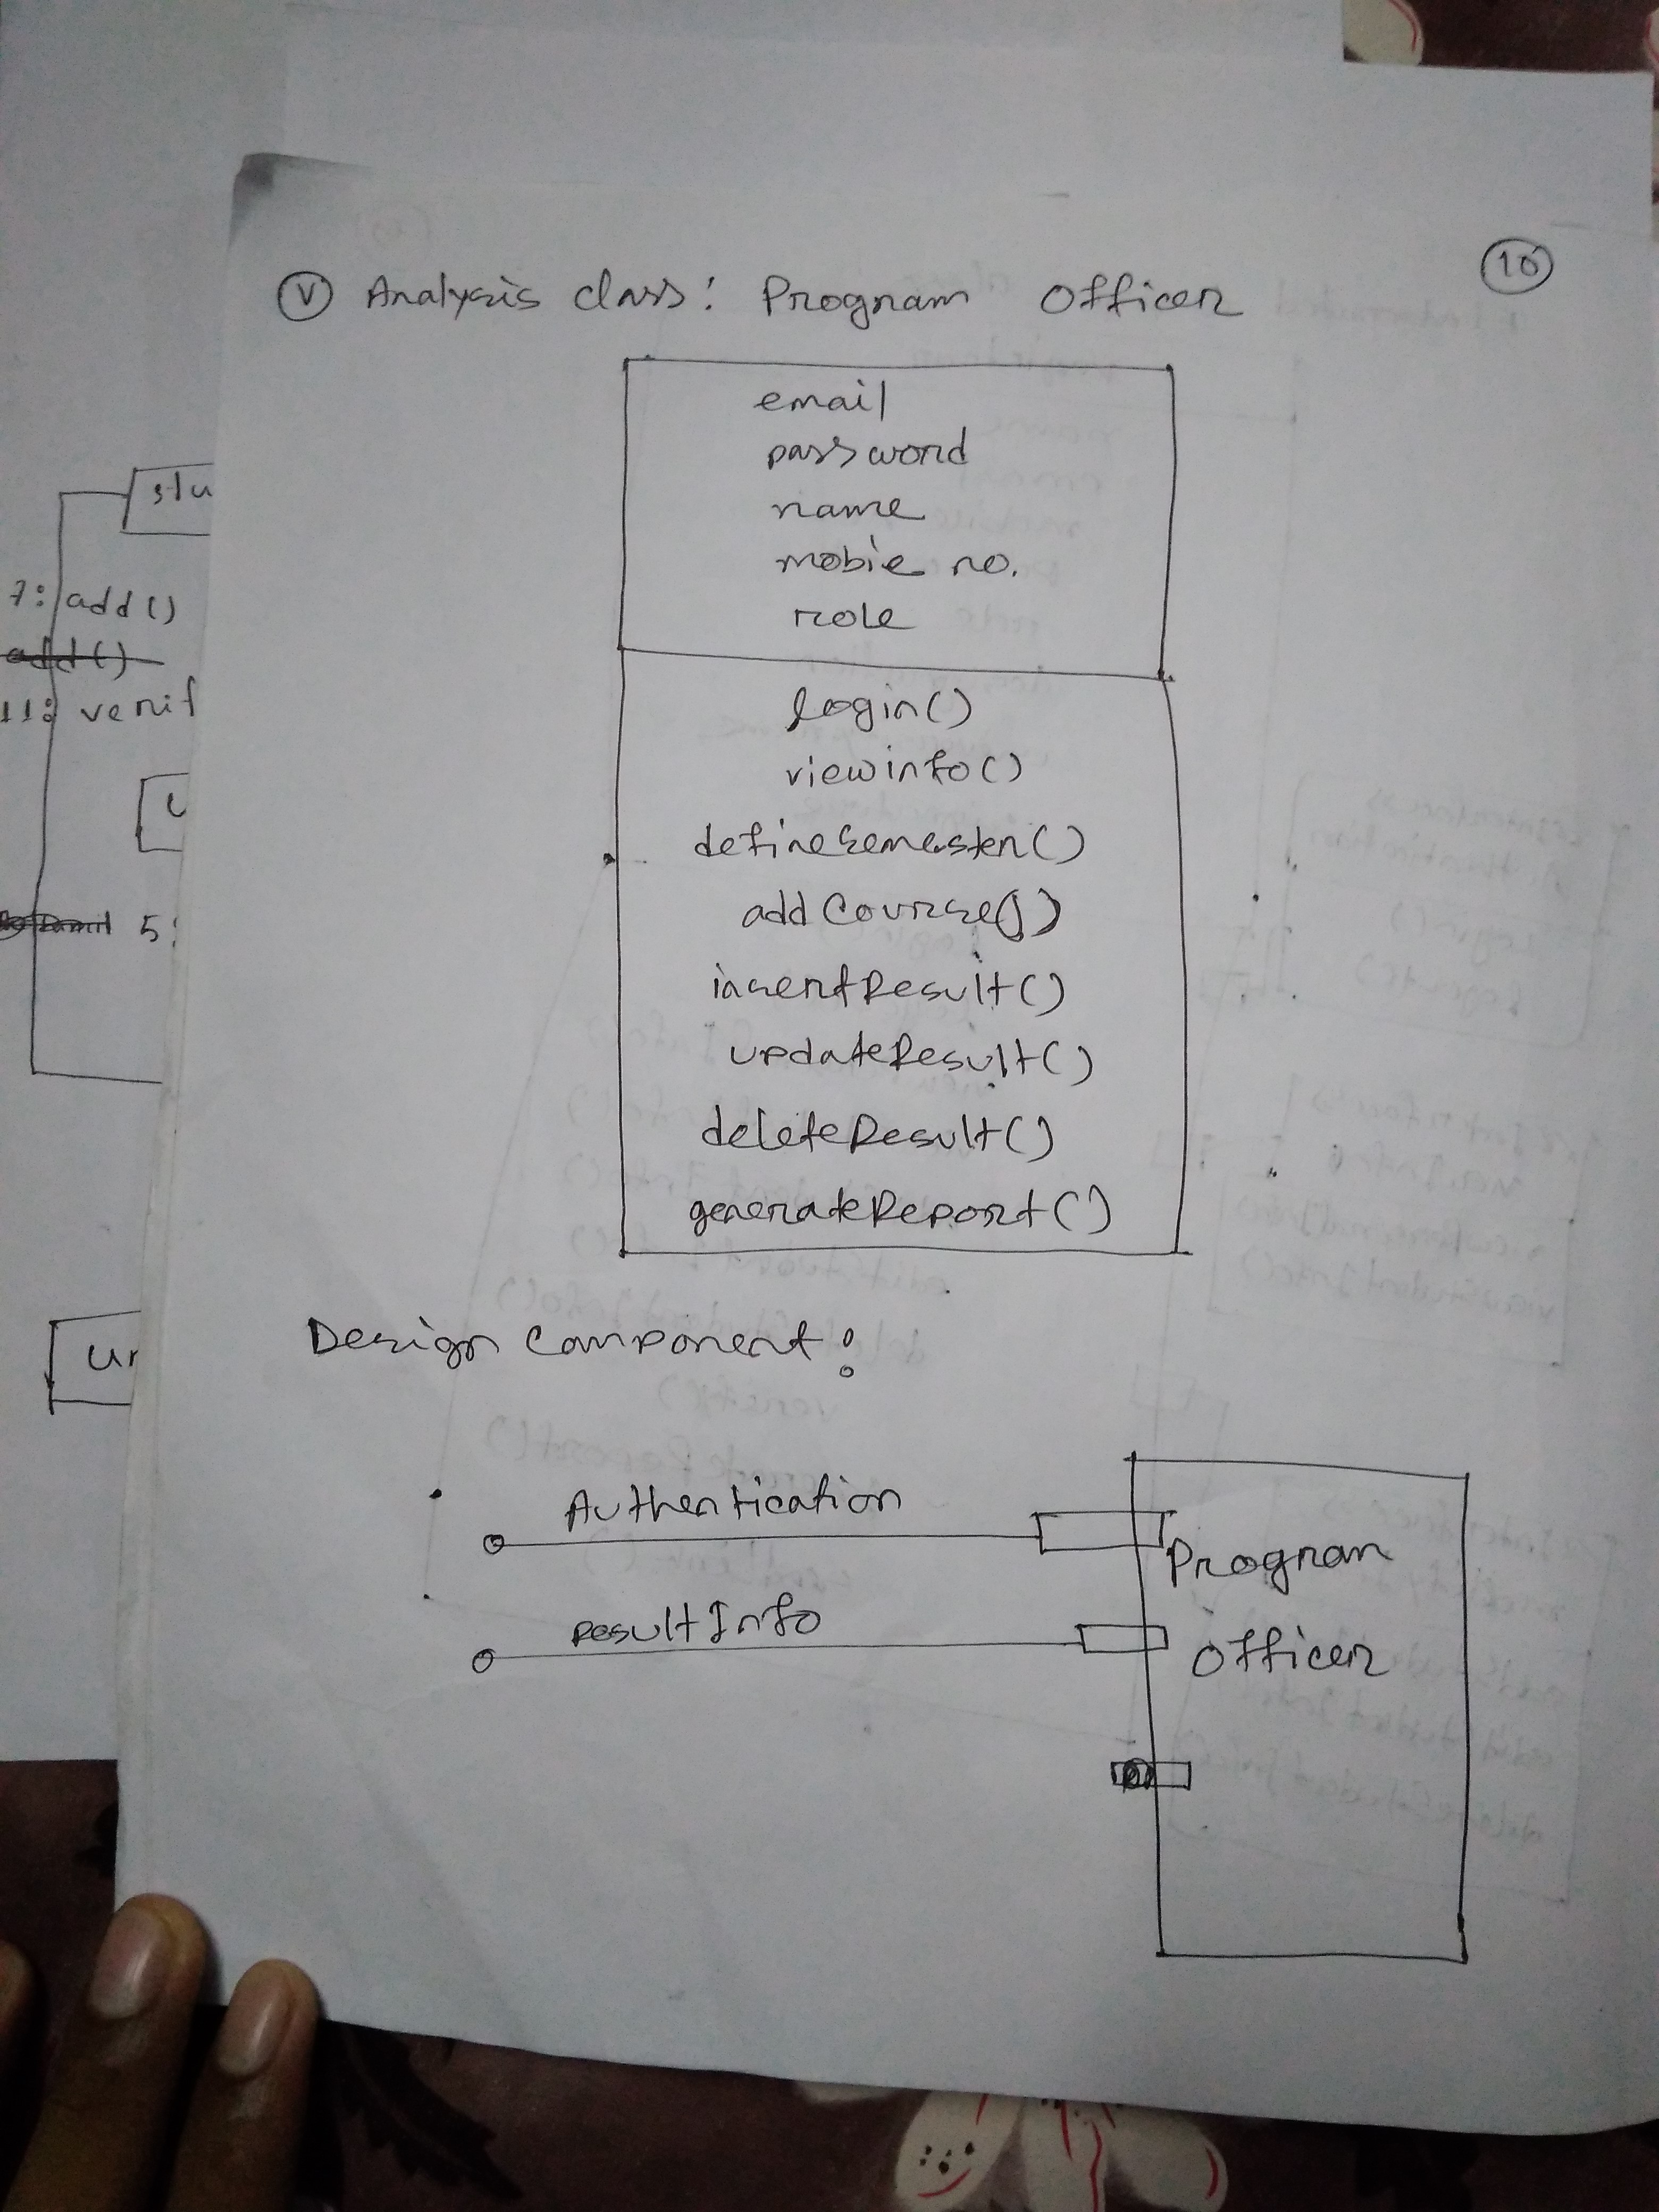 10
V Analysis class: Program Officer
email
password
name
mobie no.
role
login()
viewinfo()
definesemester()
addCourse()
insertResult()
updateResult()
deleteResult()
generateReport()
Design component:
Authentication
Program
ResultInfo
Officer
stu
7: add()
add()
11: verif
5: